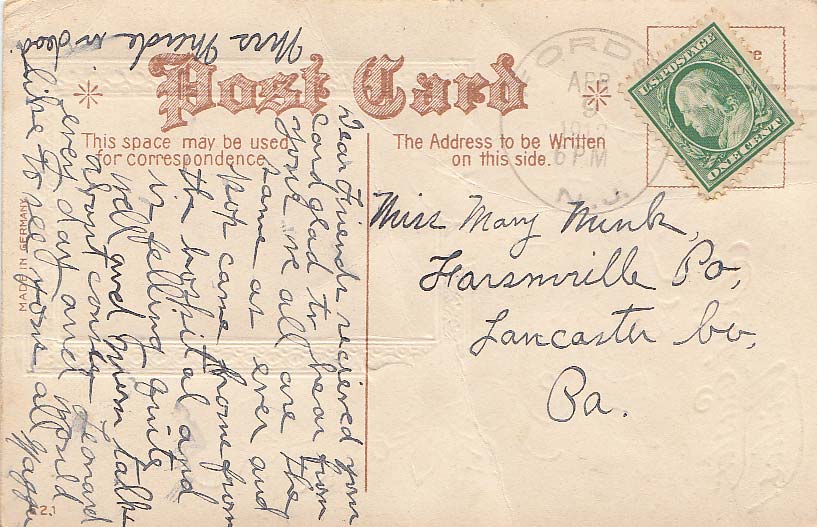 Post Card
This space may be used
for correspondence.
The Address to be Written
on this side.
U.S. POSTAGE
ONE CENT
FORD
APR
9
6 PM
N.J.
Miss Mary Mink,
Farsmville Po,
Lancaster Co,
Pa.
Dear Friends recieved your
card glad to hear from
you we all are the
same as ever and
pop came home from
the hospital and
is felling quite
well and Mom talks
about coming Leonard
every day and would
like to see yous all
Mrs
MADE IN GERMANY